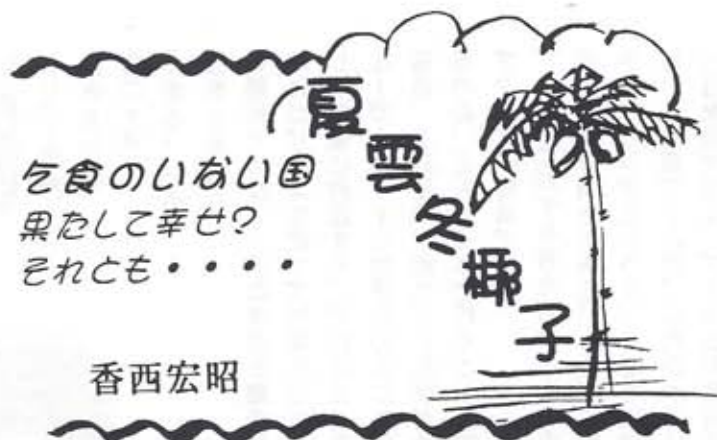 夏雲冬椰子
乞食のいない国
果たして幸せ?
それとも・・・・
香西宏昭